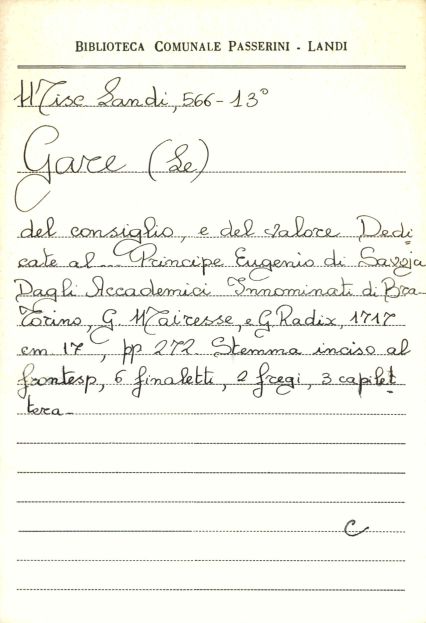 BIBLIOTECA COMUNALE PASSERINI - LANDI
Misc Landi, 566-13°
Gare (Le)
del consiglio, e del valore Dedi=
cate al ... Principe Eugenio di Savoja
Dagli Accademici Innominati di Bra-
Torino, G. Mairesse, e G Radix, 1717
cm 17, pp 272 Stemma inciso al
frontesp, 6 finaletti, 2 fregi, 3 capilet
tera-
C